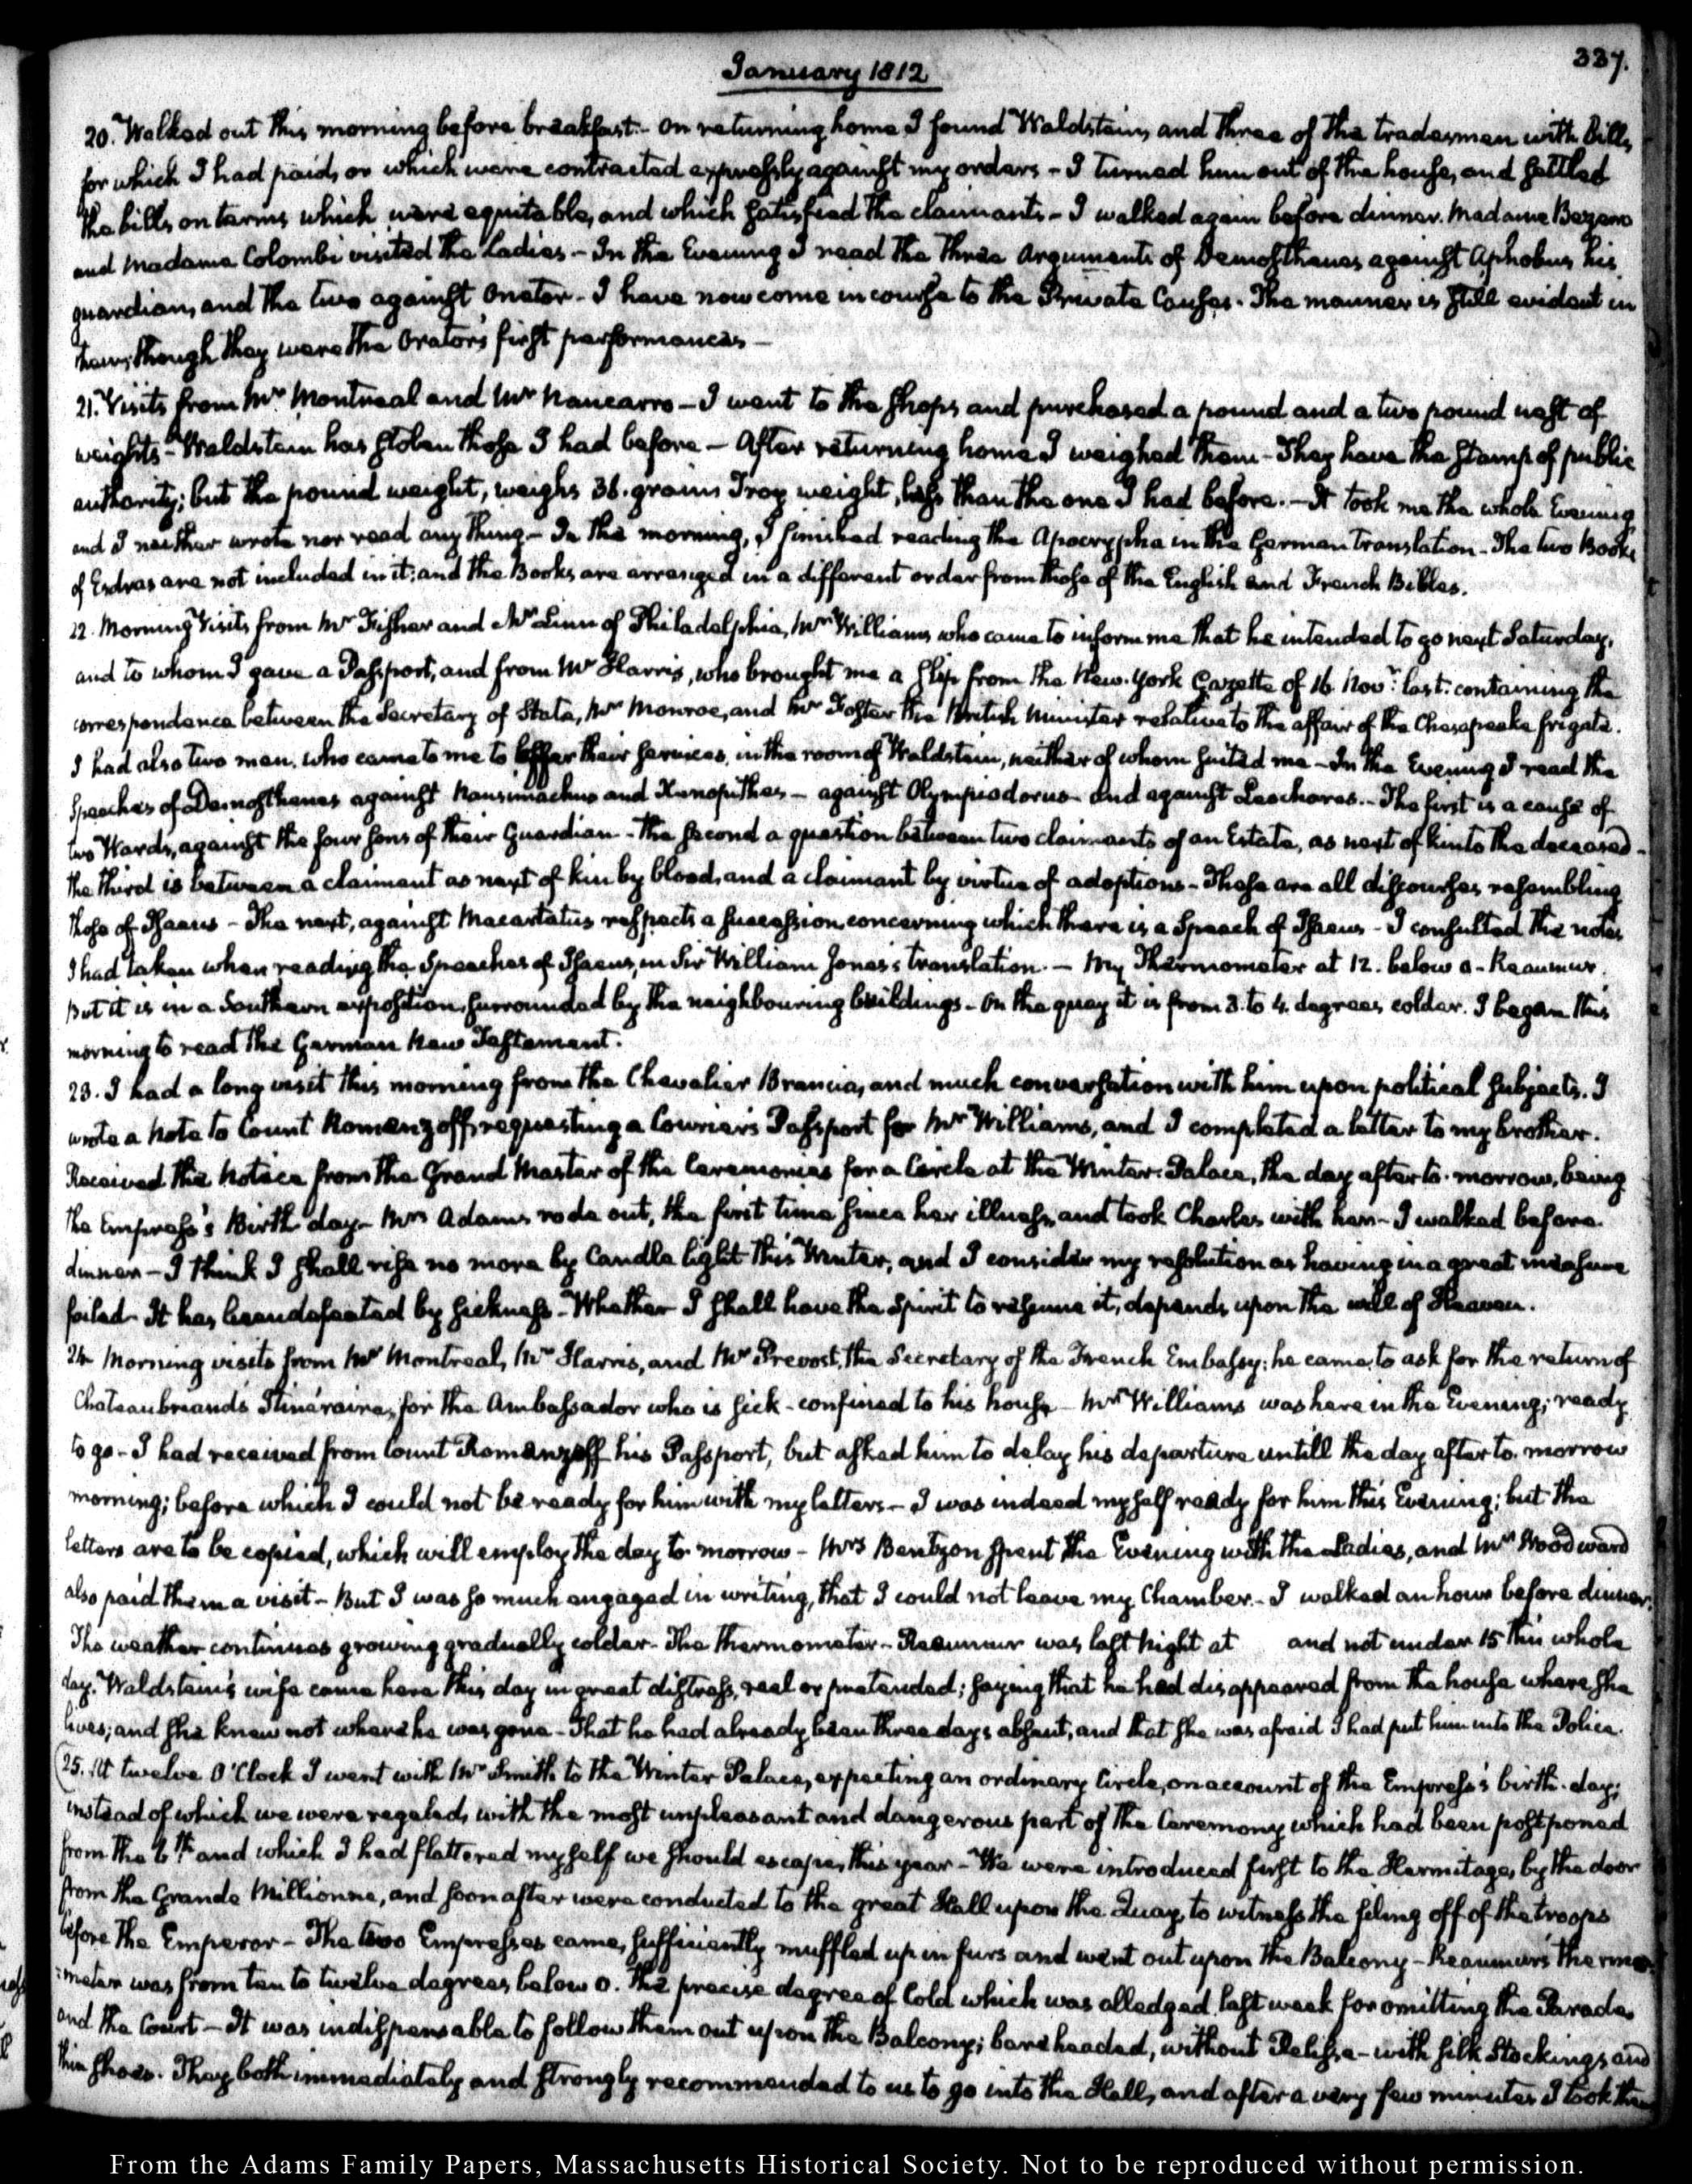 337.
January 1812
20. Walked out this morning before breakfast.- On returning home I found Waldstein, and three of the tradesmen with bills,
for which I had paid, or which were contracted expressly against my orders - I turned him out of the house, and settled
the bills on terms which were equitable, and which satisfied the claimants - I walked again before dinner. Madame Bezara
and Madame Colombi visited the Ladies. - In the Evening I read the three Arguments of Demosthenes against Aphobus his
guardian, and the two against Onetor - I have now come in course to the Private Causes. The manner is still evident in
them, though they were the Orator's first performances -
21. Visits from Mr Montreal and Mr Nancarro - I went to the shops and purchased a pound and a two pound nest of
weights - Waldstein has stolen those I had before - After returning home I weighed them - They have the stamp of public
authority; but the pound weight, weighs 36. grains Troy weight, less than the one I had before. - It took me the whole Evening
and I neither wrote nor read any thing - In the morning, I finished reading the Apocrypha in the German translation - The two Books
of Esdras are not included in it; and the Books are arranged in a different order from those of the English and French Bibles.
22. Morning Visits from Mr Fisher and Mr Linn of Philadelphia, Mr Williams, who came to inform me that he intended to go next Saturday,
and to whom I gave a Passport, and from Mr Harris, who brought me a slip from the New-York Gazette of 16 Novr: last: containing the
correspondence between the Secretary of State, Mr Monroe, and Mr Foster the British Minister relative to the affair of the Chesapeake frigate.
I had also two men, who came to me to offer their services, in the room of Waldstein, neither of whom suited me - In the Evening I read the
Speeches of Demosthenes against Nausimachus and Xenopithes - against Olympiodorus - and against Leochares. - The first is a cause of
two Wards, against the four sons of their Guardian - the second a question between two claimants of an Estate, as next of kin to the deceased -
the third is between a claimant as next of kin by blood, and a claimant by virtue of adoptions - These are all discourses resembling
those of Isaeus - The next, against Macartatus respects a succession, concerning which there is a Speech of Isaeus - I consulted the notes
I had taken when reading the Speeches of Isaeus, in Sir William Jones's translation. - My Thermometer at 12. below 0 - Reaumur.
But it is in a Southern exposition, surrounded by the neighbouring buildings - On the quay it is from 3. to 4. degrees colder. I began this
morning to read the German New Testament.
23. I had a long visit this morning from the Chevalier Brancia, and much conversation with him upon political subjects. I
wrote a Note to Count Romanzoff, requesting a Courier's Passport for Mr Williams, and I completed a letter to my brother.
Received the notice from the Grand Master of the Ceremonies for a Circle at the Winter-Palace, the day after to-morrow, being
the Empress's Birth day - Mrs Adams rode out, the first time since her illness, and took Charles with her - I walked before
dinner - I think I shall rise no more by Candle light this Winter, and I consider my resolution as having in a great measure
failed - It has been defeated by sickness - Whether I shall have the spirit to resume it, depends upon the will of Heaven.
24 Morning visits from Mr Montreal, Mr Harris, and Mr Prevost, the Secretary of the French Embassy; he came to ask for the return of
Chateaubriand's Itinéraire, for the Ambassador who is sick - confined to his house - Mr Williams was here in the Evening; ready
to go - I had received from Count Romanzoff his Passport, but asked him to delay his departure untill the day after to-morrow
morning; before which I could not be ready for him with my letters - I was indeed myself ready for him this Evening; but the
letters are to be copied, which will employ the day to-morrow - Mrs Bentzon spent the Evening with the Ladies, and Mr Woodward
also paid them a visit - But I was so much engaged in writing, that I could not leave my Chamber. - I walked an hour before dinner;
The weather continues growing gradually colder - The thermometer - Reaumur was last night at and not under 15 this whole
day. Waldstein's wife came here this day in great distress, real or pretended; saying that he had disappeared from the house where she
lives; and she knew not where he was gone - That he had already been three days absent, and that she was afraid I had put him into the Police.
25. At twelve O'Clock I went with Mr Smith to the Winter Palace, expecting an ordinary Circle, on account of the Empress's birth-day;
instead of which we were regaled, with the most unpleasant and dangerous part of the Ceremony which had been postponed
from the 6th and which I had flattered myself we should escape, this year - We were introduced first to the Hermitage, by the door
from the Grande Millionne, and soon after were conducted to the great Hall upon the Quay, to witness the filing off of the troops
before the Emperor - The two Empresses came, sufficiently muffled up in furs and went out upon the Balcony - Reaumur's thermo-
:meter was from ten to twelve degrees below 0. the precise degree of Cold which was alledged last week for omitting the Parade
and the Court - It was indispensable to follow them out upon the Balcony; bareheaded, without Pelisse - with silk Stockings and
thin shoes. They both immediately and strongly recommended to us to go into the Hall, and after a very few minutes I took their
From the Adams Family Papers, Massachusetts Historical Society. Not to be reproduced without permission.